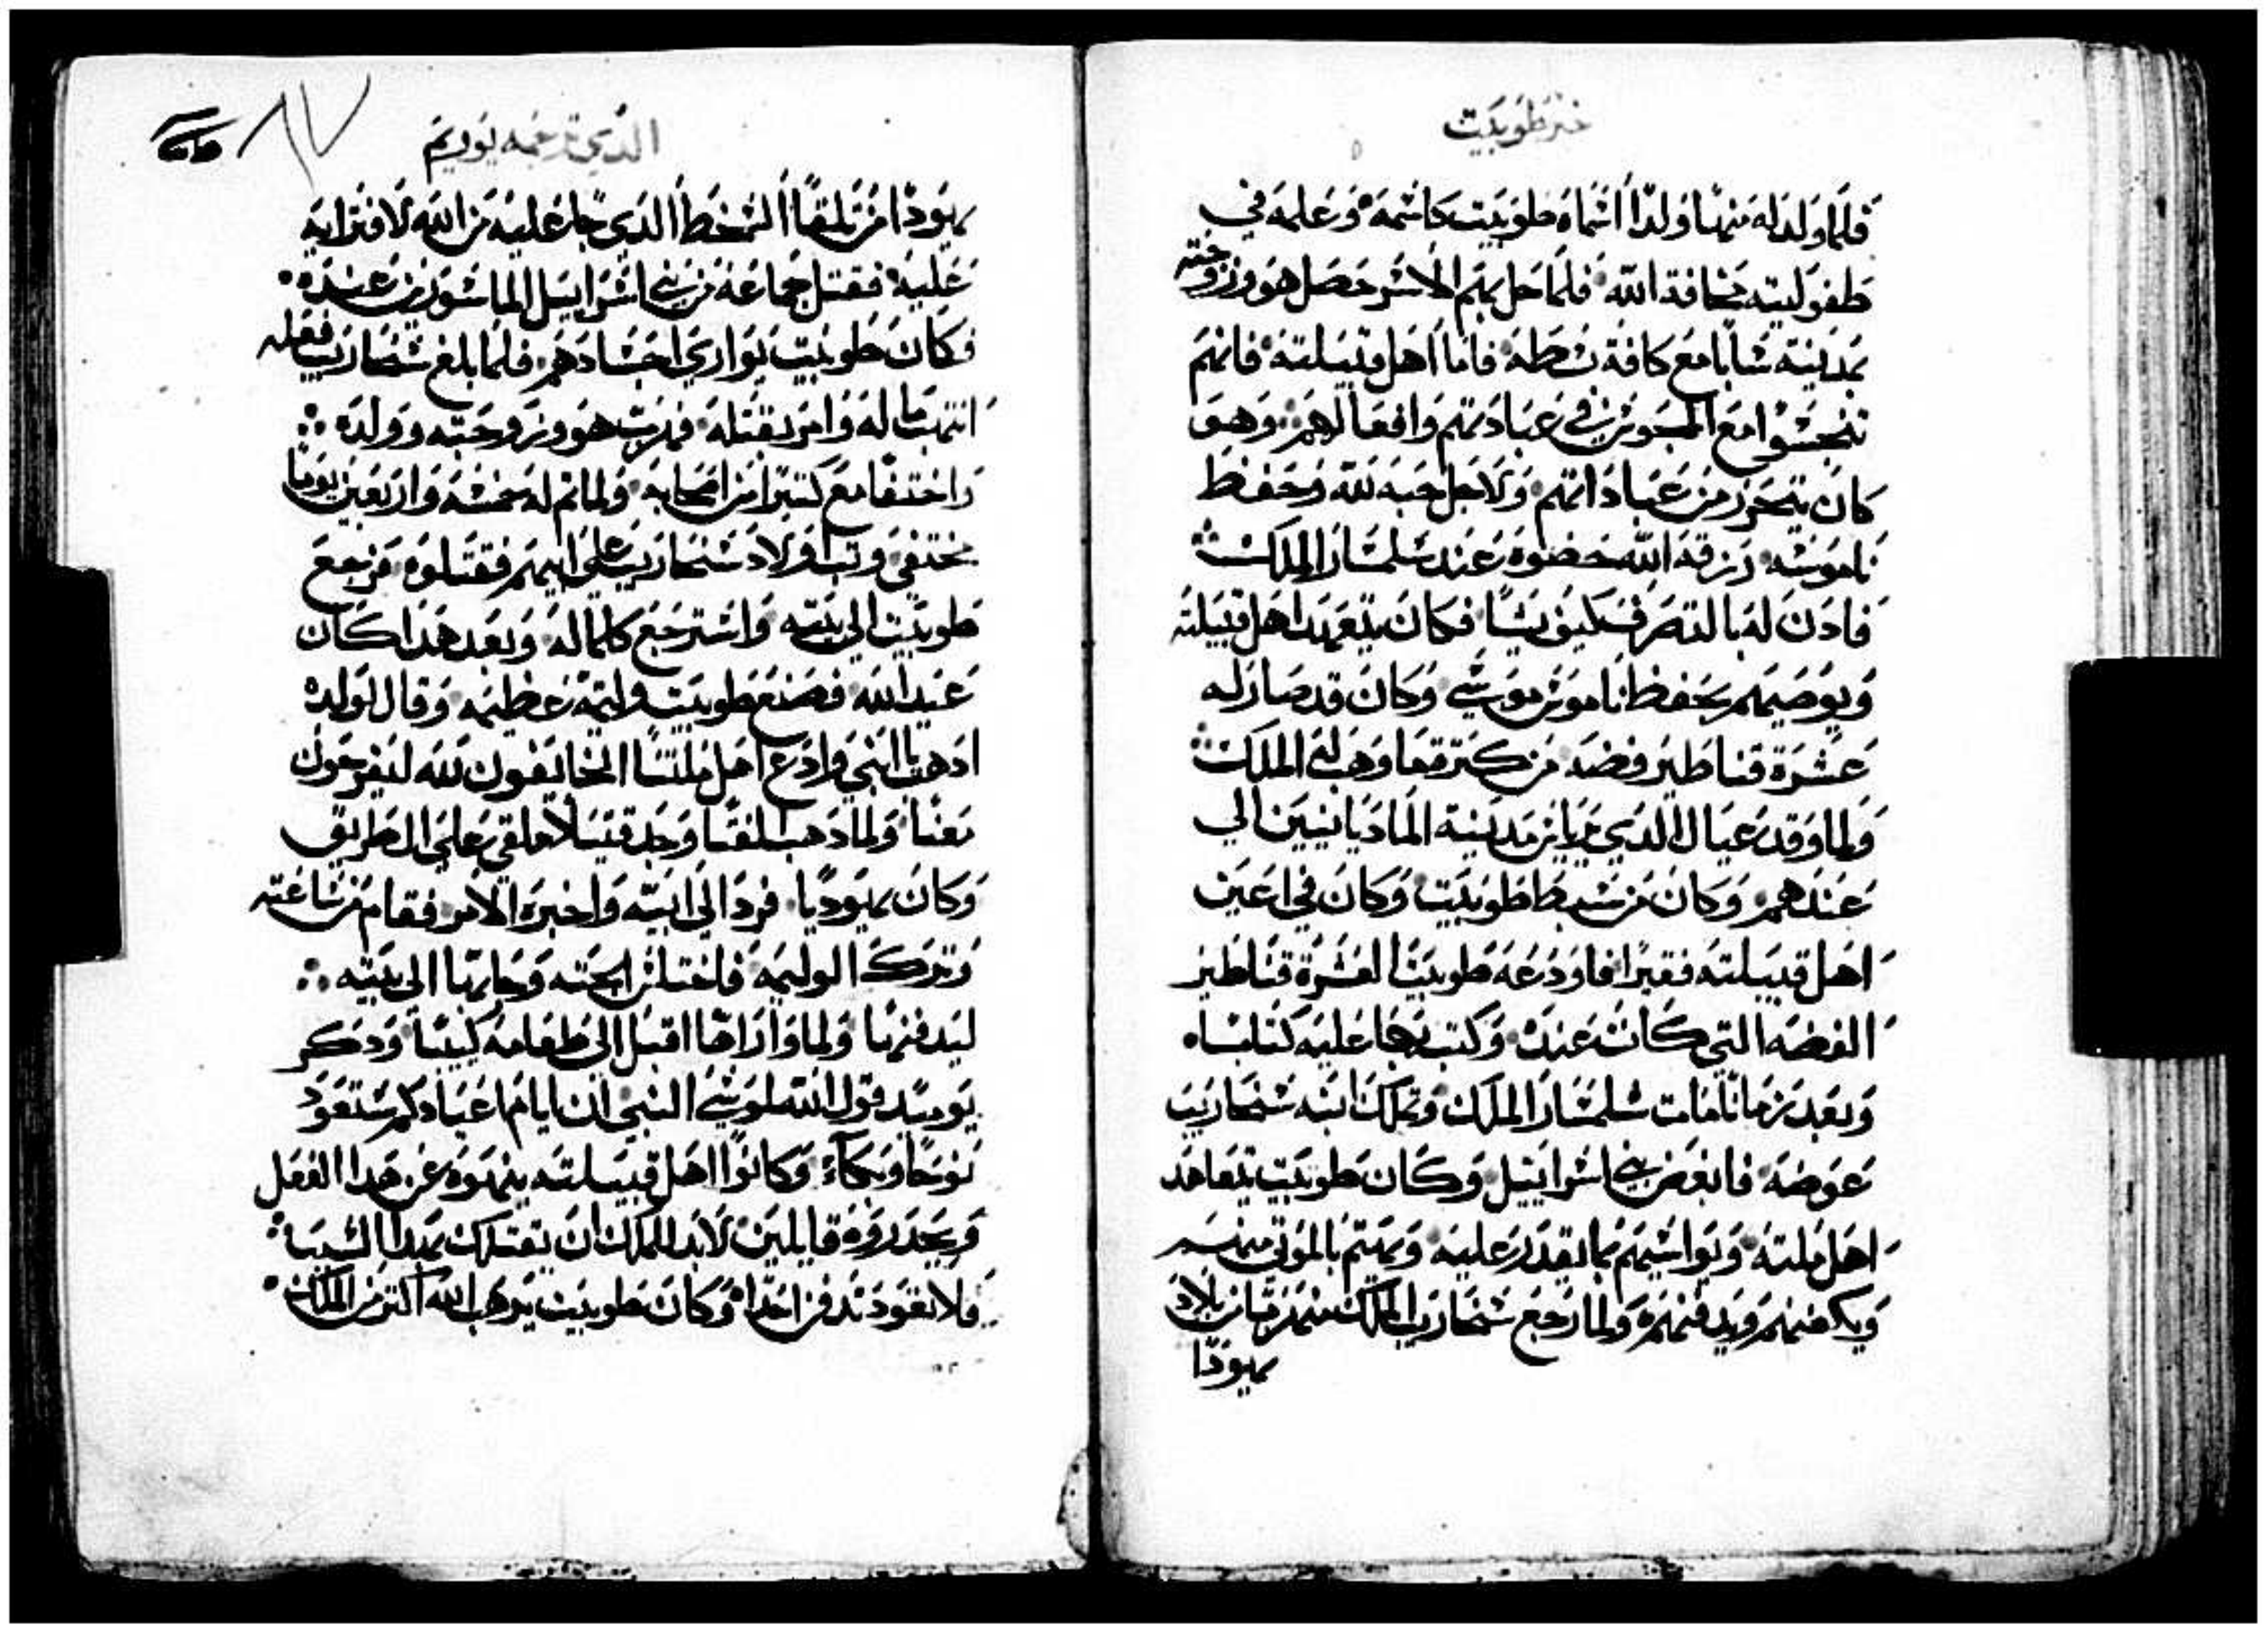 خبر طوبيت
فلما ولد له منها ولدا اسماه طوبيت كاسمه وعلمه في
طفوليته مخافة الله فلما حل بهم الاسر حصل هو وزوجته
بمدينة شابا مع كافة سبطه فاما اهل قبيلته فانهم
تنجسوا مع المجوس في عبادتهم وافعالهم وهو
كان يتحرز من عباداتهم ولاجل حبه لله وحفظ
ناموسه رزقه الله حضوه عند سلمنسار الملك
فادن له بالتصرف كيف يشا فكان يتعهد اهل قبيلته
ويوصيهم بحفظ ناموس موسي وكان قد صار له
عشرة قناطير فضه من كترة ما وهب له الملك
ولما وفد عيال الدي غابا من مدينة الماديانيين الي
عندهم وكان من سبط طوبيت وكان في اعين
اهل قبيلته فقيرا فاودعه طوبيت العشرة قناطير
الفضه التي كانت عنده وكتب بها عليه كتابا
وبعد زمانا مات سلمنسار الملك وتملك ابنه سنحاريب
عوضه فابغض بني اسراييل وكان طوبيت يتعاهد
اهل ملته ويواسيهم بما يقدر عليه ويهتم بالموتي منهم
ويكفنهم ويدفنهم ولما رجع سنحاريب الملك منهزما من بلاد
يهودا
الدي ترجمه يوريم
يهودا من تلقا السخط الدي جا عليه من الله لافترايه
عليه فقتل جماعة من بني اسراييل الماسورين عنده
فكان طوبيت يواري اجسادهم فلما بلغ سنحاريب فعله
انتهب ماله وامر بقتله فهرب هو وزوجته وولده
واختفا مع كتيرا من اصحابه ولما تم له خمسة واربعين يوما
مختفي وتب اولاد سنحاريب علي ابيهم فقتلوه فرجع
طوبيت الي بيته واسترجع كلما له وبعد هدا كان
عيد الله فصنع طوبيت وليمة عظيمه وقال لولده
ادهب يا ابني وادع اهل ملتنا الخايفون لله ليفرحون
معنا ولما دهب الفتا وجد قتيلا ملقي علي الطريق
وكان يهوديا فرد الي ابيه واخبره الامر فقام من ساعته
وترك الوليمه فاختلس الجته وجا بها الي بيته
ليدفنها ولما واراها اقبل الي طعامه كييبا ودكر
يوميد قول الله النبي ان ايام اعيادكم ستعود
نوحا وبكاء وكانوا اهل قبيلته ينهوه عن هدا الفعل
ويحدروه قايلين لابد للملك ان يقتلك بهدا السبب
فلا تعود تدفن احدا وكان طوبيت يرهب الله اكتر من الملك